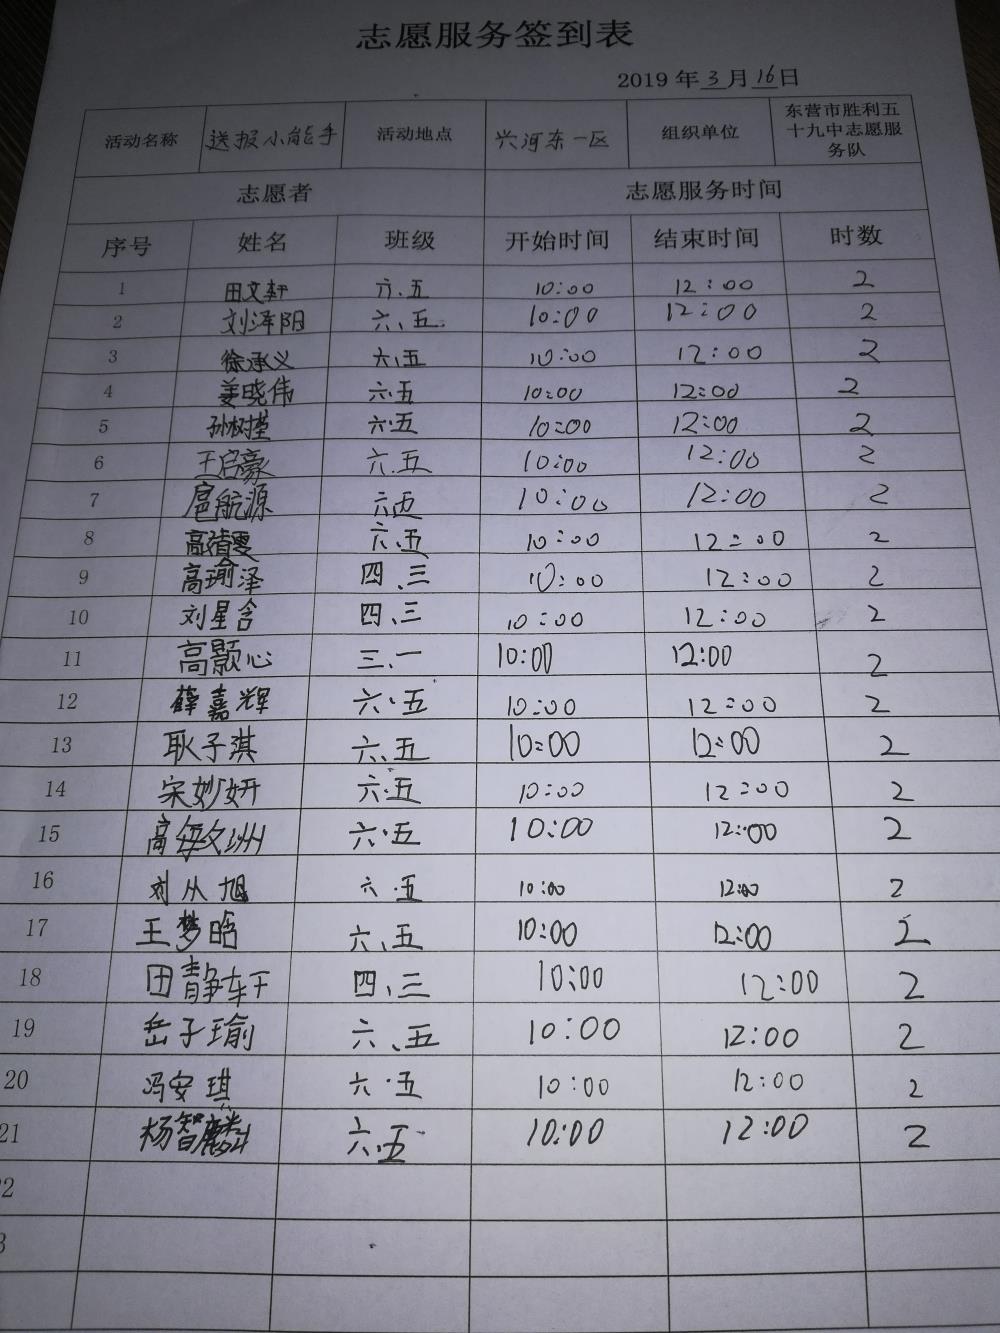 志愿服务签到表
2019 年 3 月 16 日
活动名称 送报小能手 活动地点 兴河东一区 组织单位 东营市胜利五十九中志愿服务队
志愿者 志愿服务时间
序号 姓名 班级 开始时间 结束时间 时数
1 田文轩 六.五 10:00 12:00 2
2 刘泽阳 六、五 10:00 12:00 2
3 徐承义 六.五 10:00 12:00 2
4 姜晓伟 六.五 10:00 12:00 2
5 孙树瑾 六.五 10:00 12:00 2
6 王启豪 六.五 10:00 12:00 2
7 扈航源 六五 10:00 12:00 2
8 高清雯 六.五 10:00 12:00 2
9 高瑜泽 四、三 10:00 12:00 2
10 刘星含 四、三 10:00 12:00 2
11 高颢心 三、一 10:00 12:00 2
12 薛嘉辉 六.五 10:00 12:00 2
13 耿子淇 六.五 10:00 12:00 2
14 宋妙妍 六.五 10:00 12:00 2
15 高每文洲 六.五 10:00 12:00 2
16 刘从旭 六.五 10:00 12:00 2
17 王梦晗 六、五 10:00 12:00 2
18 田静轩 四、三 10:00 12:00 2
19 岳子瑜 六、五 10:00 12:00 2
20 冯安琪 六.五 10:00 12:00 2
21 杨智麟 六.五 10:00 12:00 2
2
3